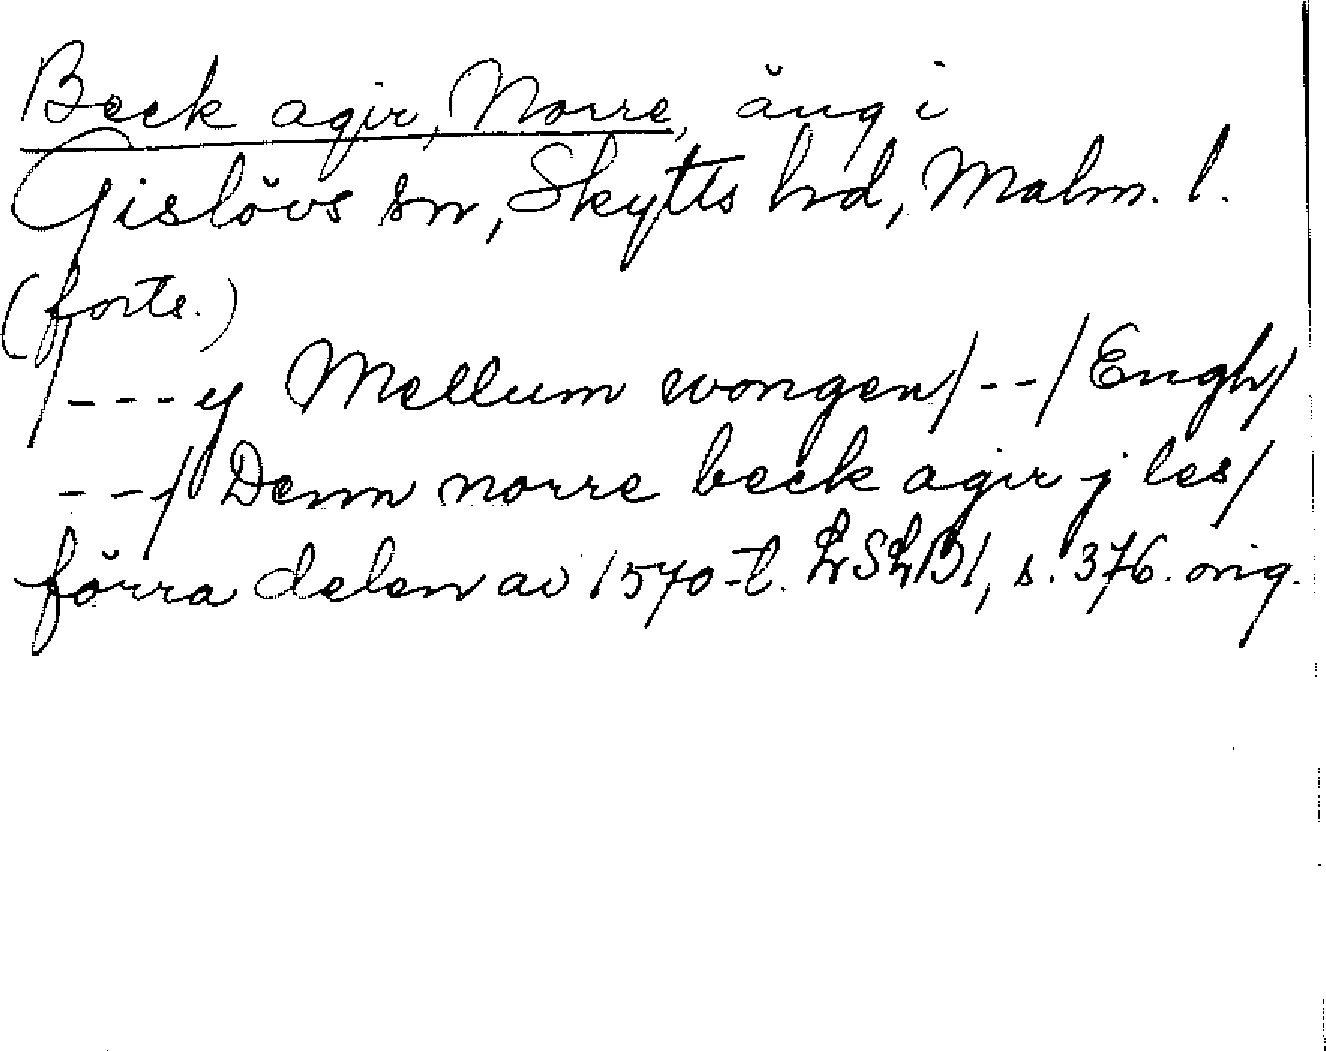 Beck agir, Norre, äng i
Gislövs sn, Skytts hd, Malm. l.
(forts.)
/---y Mellum wongen/--/Engh/
--/Denn norre beck agir j les/
förra delen av 1570-t. LrSLB1, s. 376. orig.